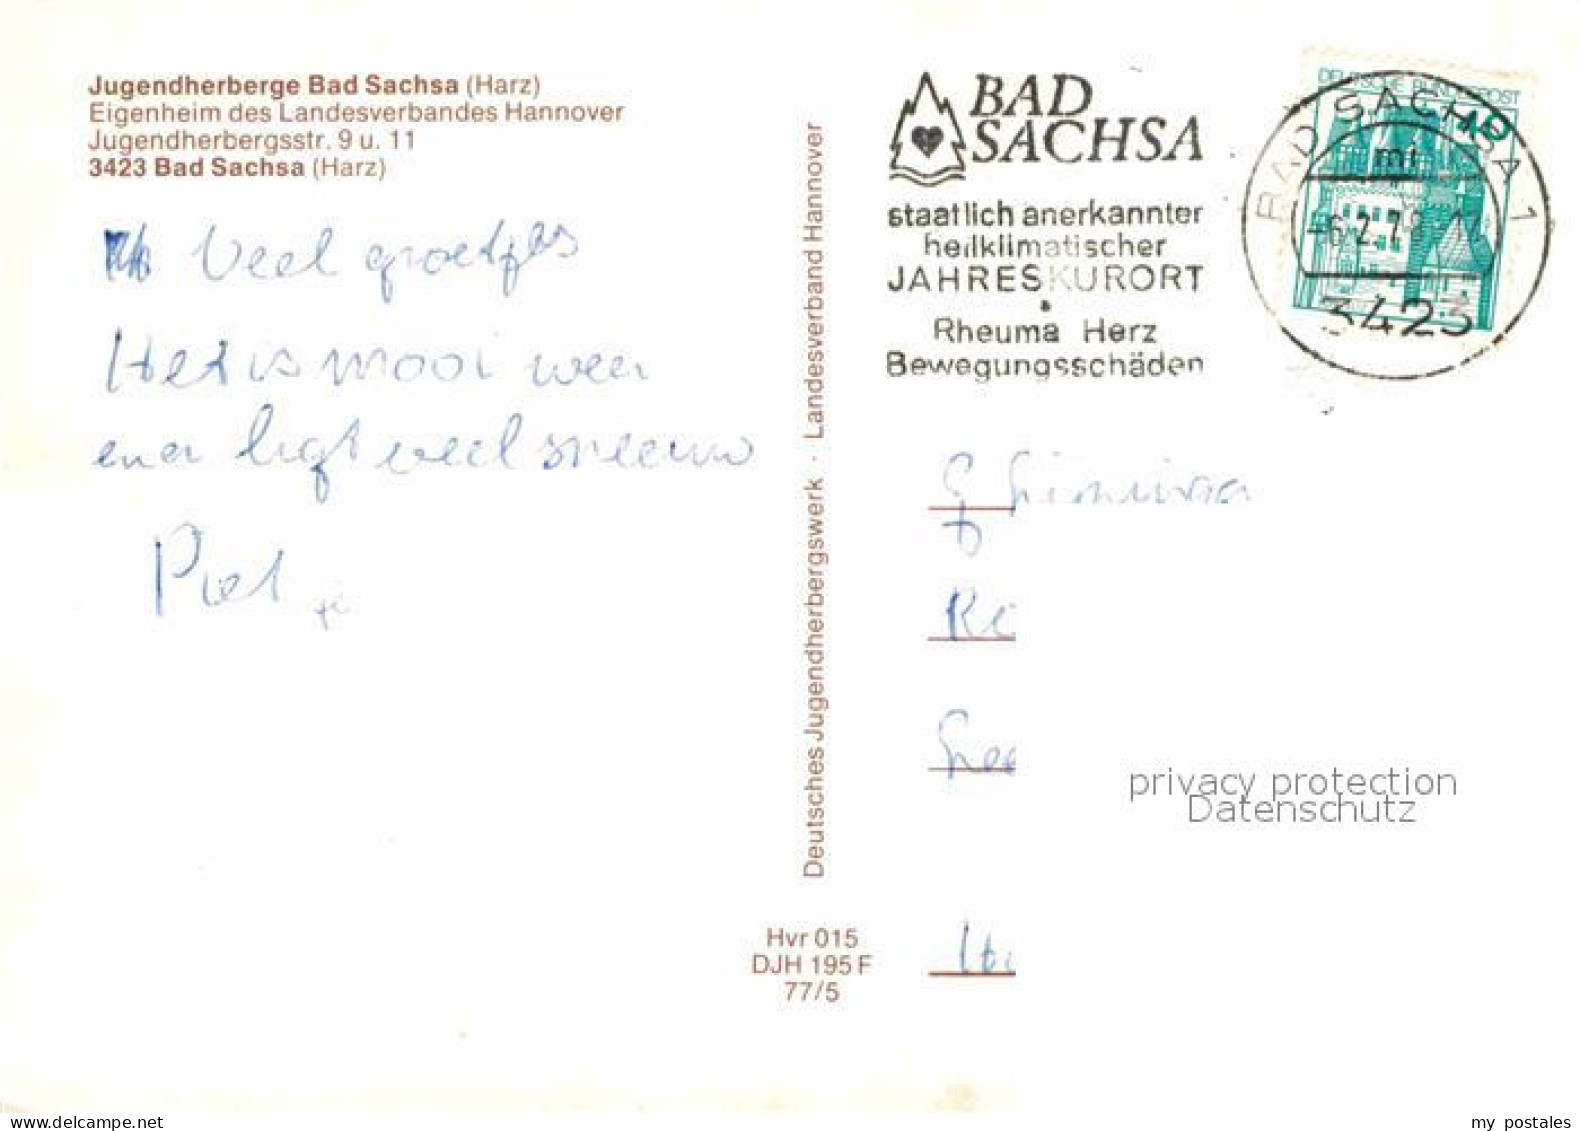 Jugendherberge Bad Sachsa (Harz)
Eigenheim des Landesverbandes Hannover
Jugendherbergsstr. 9 u. 11
3423 Bad Sachsa (Harz)
Veel groetjes
Het is mooi weer
en er ligt veel sneeuw
Piet
Deutsches Jugendherbergswerk · Landesverband Hannover
Hvr 015
DJH 195 F
77/5
BAD
SACHSA
staatlich anerkannter
heilklimatischer
JAHRESKURORT
Rheuma Herz
Bewegungsschäden
DEUTSCHE BUNDESPOST
BAD SACHSA 1
mi
3423
privacy protection
Datenschutz
my postales